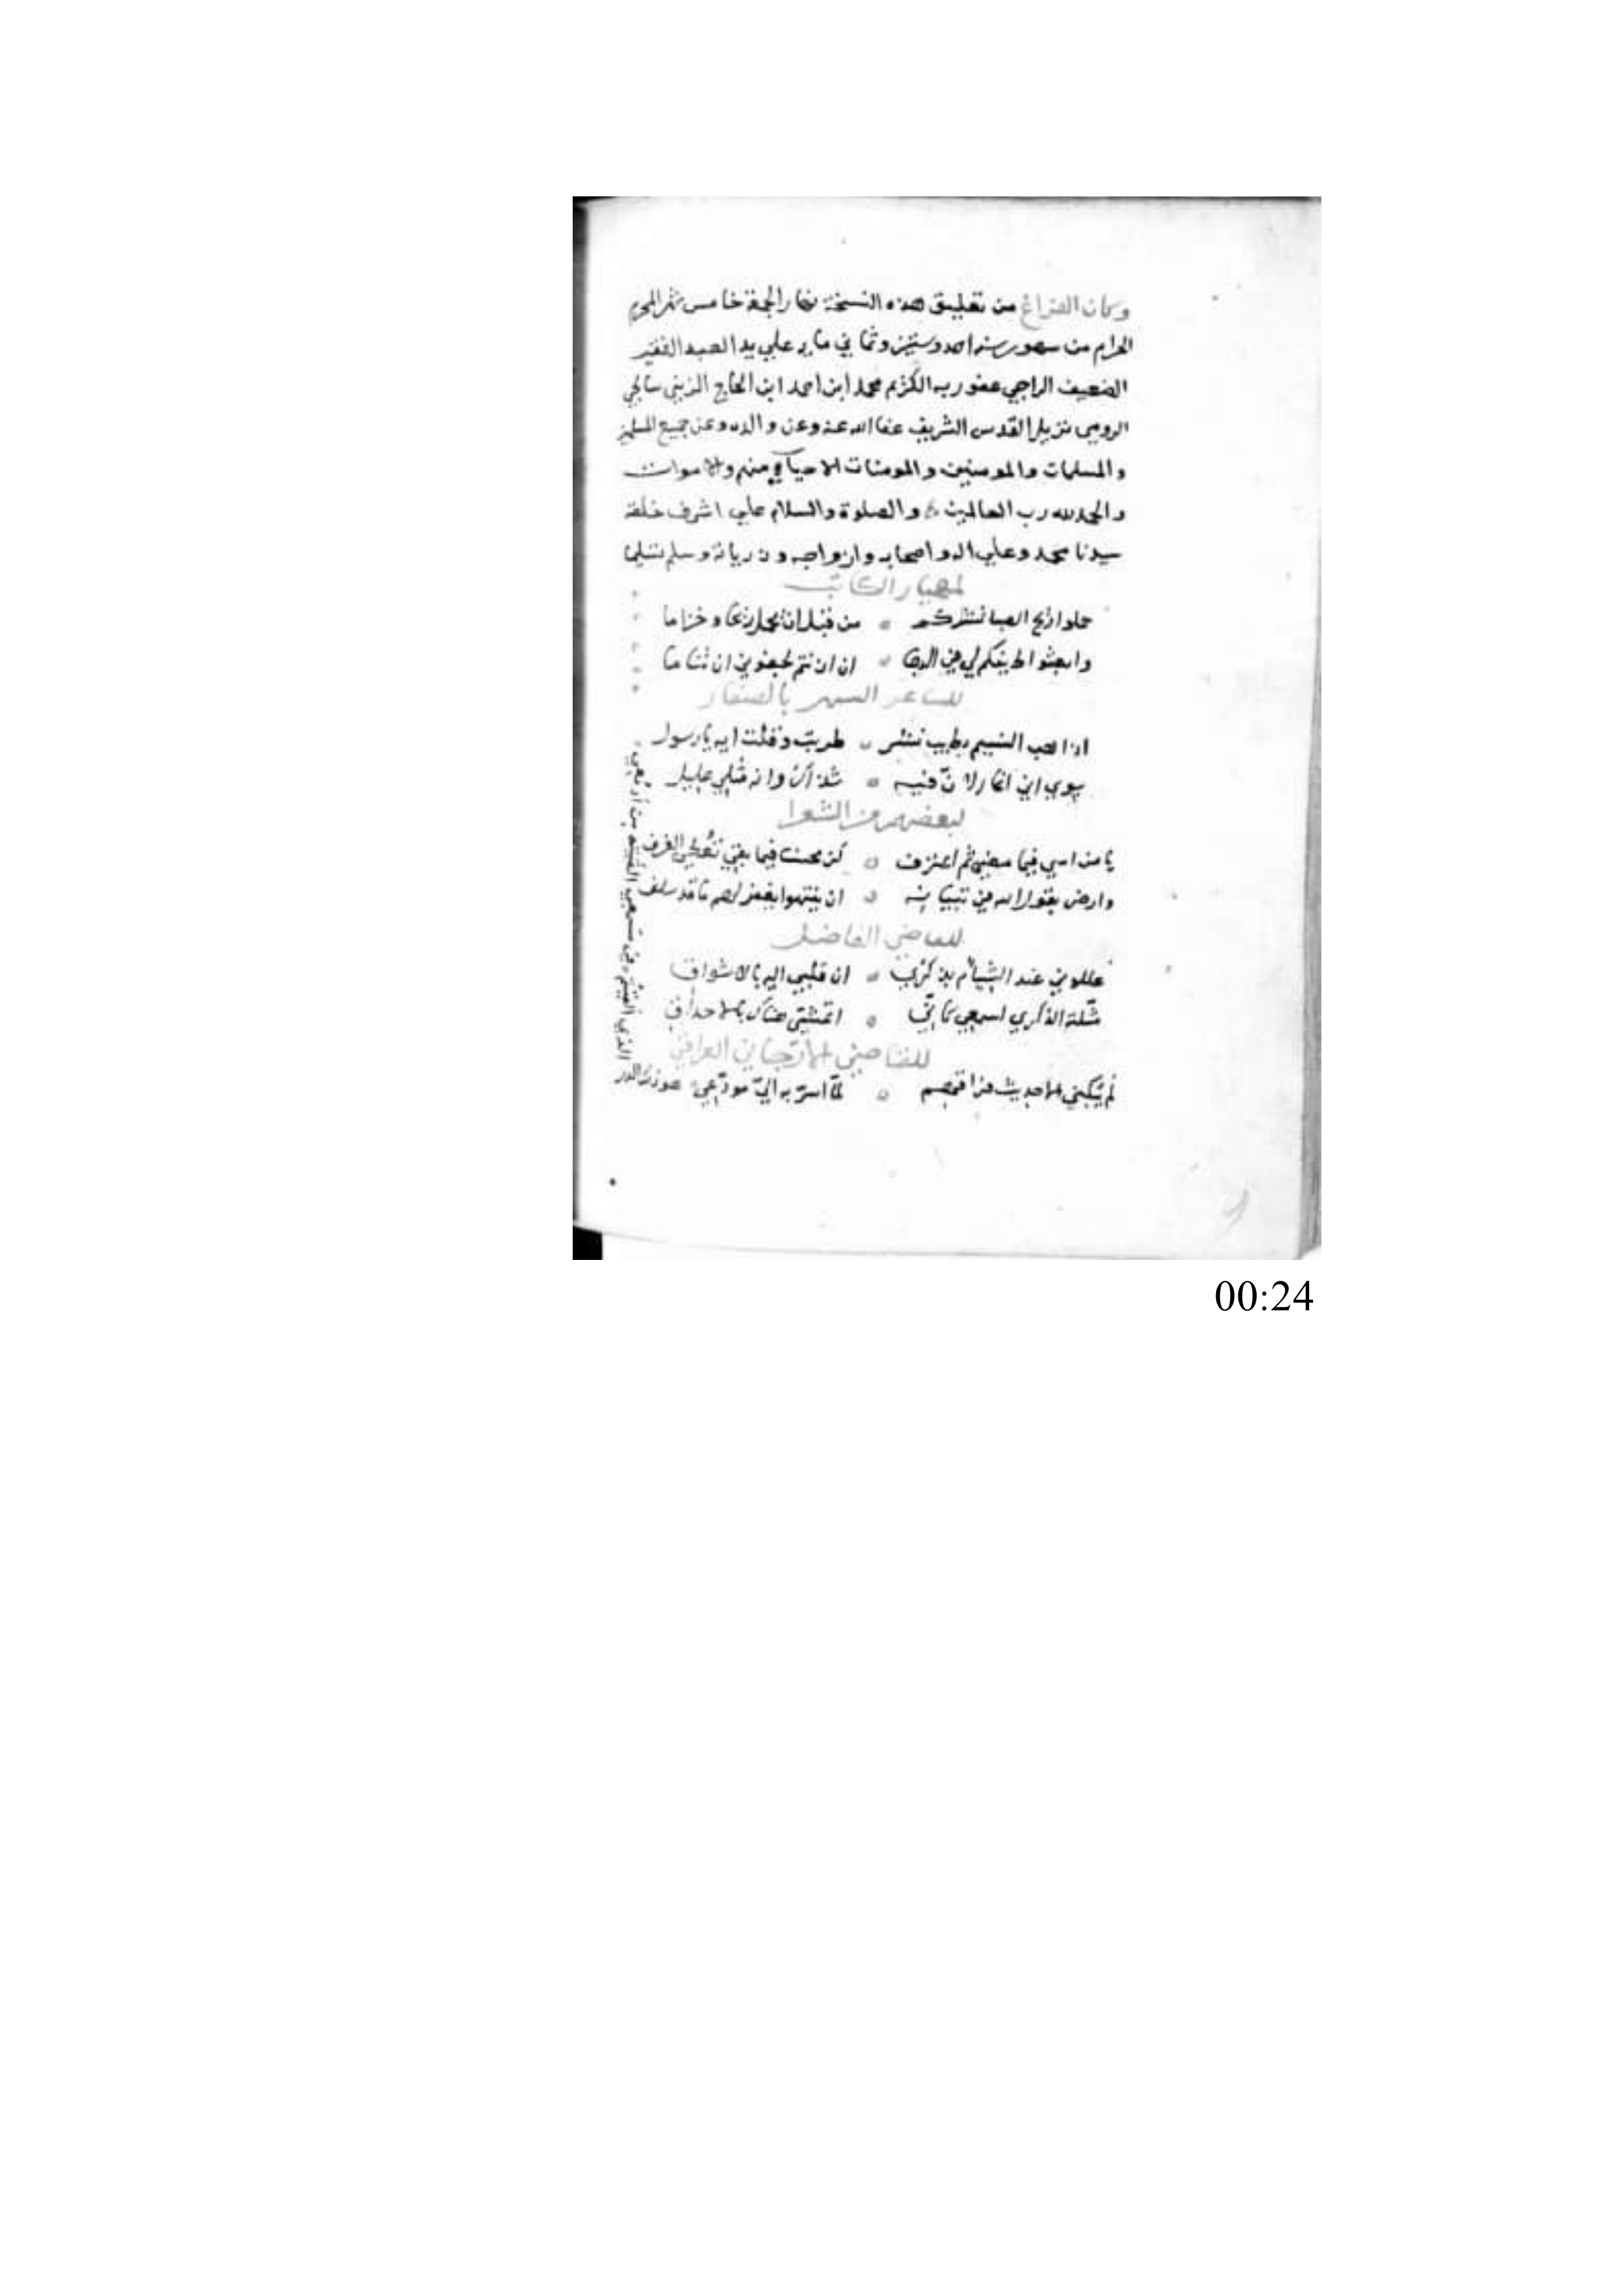 وكان الفراغ من تعليق هذه النسخة نهار الجمعة خامس شهر المحرم
الحرام من شهور سنة احد وستين وثماني مايه علي يد العبد الفقير
الضعيف الراجي عفو ربه الكريم محمد ابن احمد ابن الحاج الزيني
الرومي نزيل القدس الشريف عفا الله عنه وعن والديه وعن جميع المسلمين
والمسلمات والمومنين والمومنات الاحيا منهم والاموات
والحمد لله رب العالمين والصلوة والسلام علي اشرف خلقه
سيدنا محمد وعلي اله واصحابه وازواجه وذرياته وسلم تسليما
لمهيار الكاتب
حملوا اريح الصبا نشركم من قبل ان تحمل وخزاما
وابعثوا لي في الدجا ان اذنتم لجفوني ان تناما
للشاعر الشهير بالصفار
اذا هب النسيم بطيب نشر طربت وقلت ايه يا رسول
سوي اني اغار لان فيه شذاك وانه مثلي عليل
لبعضهم من الشعرا
يا من اسي فيما مضي ثم اعترف كن محسنا فيما بقي تعطي الغرف
وارض بقول الله في ان ينتهوا يغفر لهم ما قد سلف
للقاضي الفاضل
عللوني عند بذكري ان قلبي اليه بالاشواق
بالاحداق
للقاضي الارجاني العراقي
لم يبكني الا حديث فراقهم لما اسر به الي مودعي هو ذلك الدر
الذي في مسمعي من ادمعي
00:24